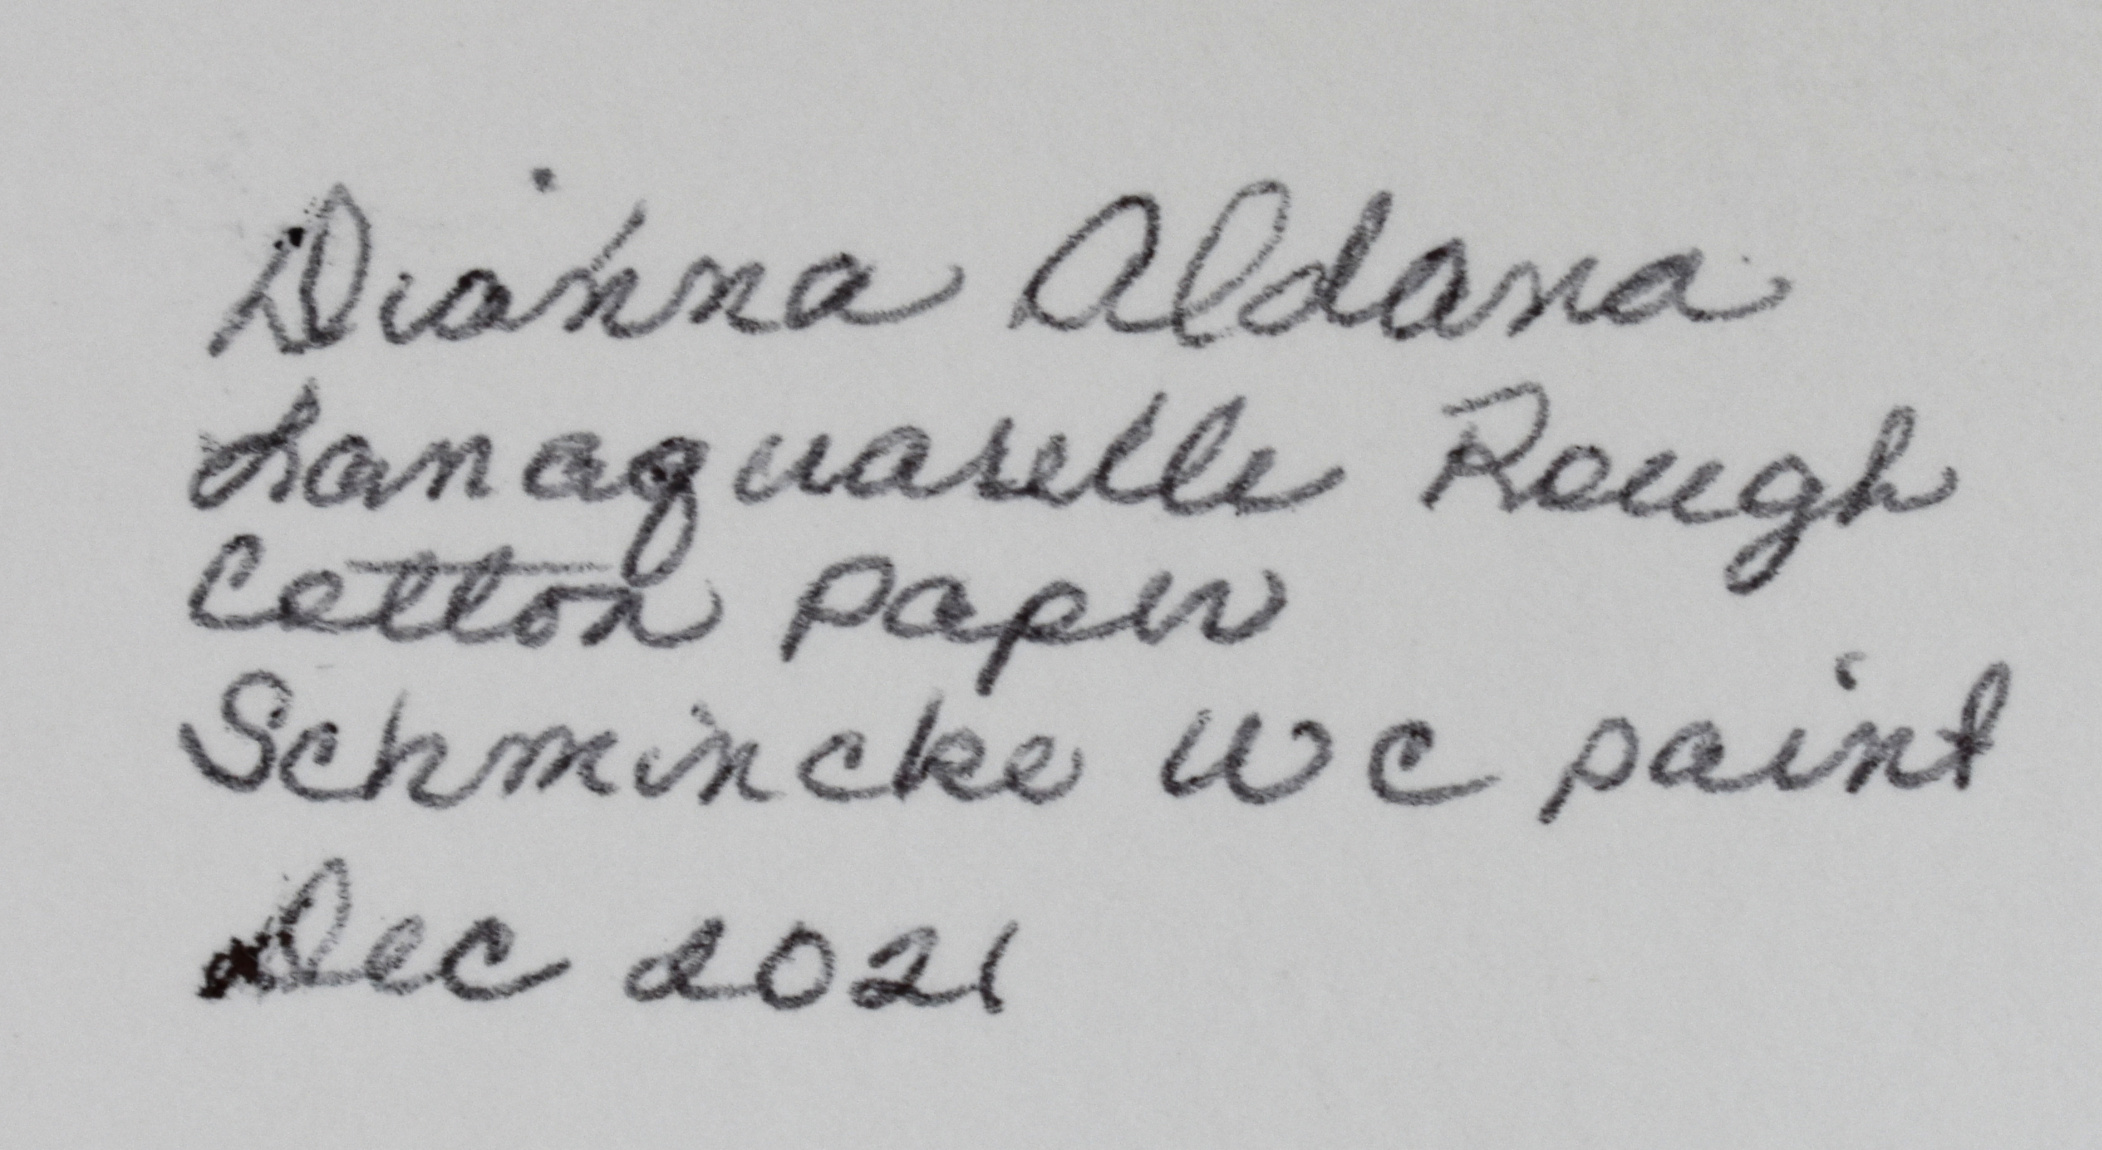 Dianna Aldana
Lanaquarelle Rough
Cotton paper
Schmincke WC paint
Dec 2021